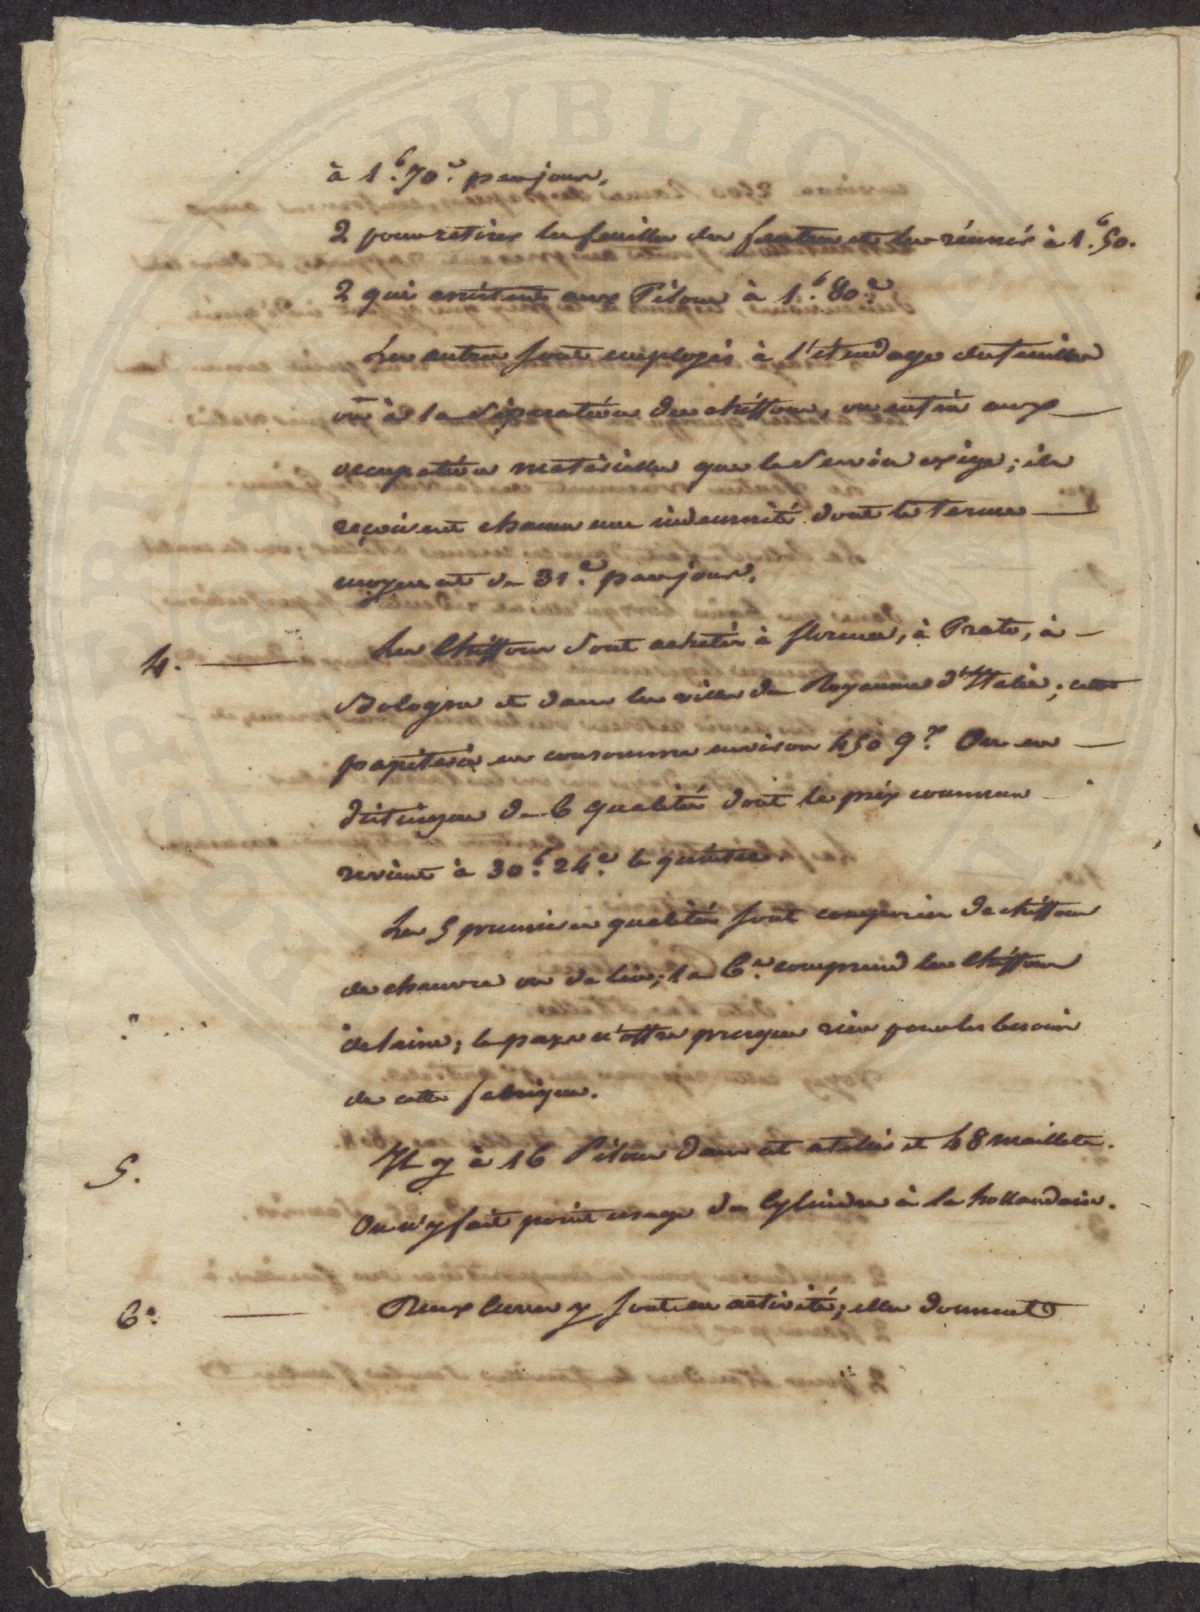 à 1.f 70.c par jour.
2 pour retirer les feuilles du feutre et les réunir à 1.f 50.
2 qui assistent aux Pilons à 1.f 80.c
Les autres sont employés à l'étendage des feuilles
ou à la séparation des chiffons, ou enfin aux
occupations matérielles que le service exige; ils
reçoivent chacun une indemnité dont le terme
moyen est de 31.c par jour.
4. Les Chiffons sont achetés à florence, à Prato, à
Bologne et dans les villes du Royaume d'Italie; cette
papeterie en consomme environ 450 q.x On en
distingue de 6 qualités dont le prix commun
revient à 30.f 24.c le quintal
Les 5 premières qualités sont composées de chiffons
de chanvre ou de lin; la 6.e comprend les Chiffons
de laine; le pays n'offre presque rien pour les besoins
de cette fabrique.
5. Il y à 16 Pilons dans cet atelier et 48 maillets.
On n'y fait point usage du Cylindre à la hollandaise.
6.e Deux Cuves y sont en activité; elles donnent
PVBLIC